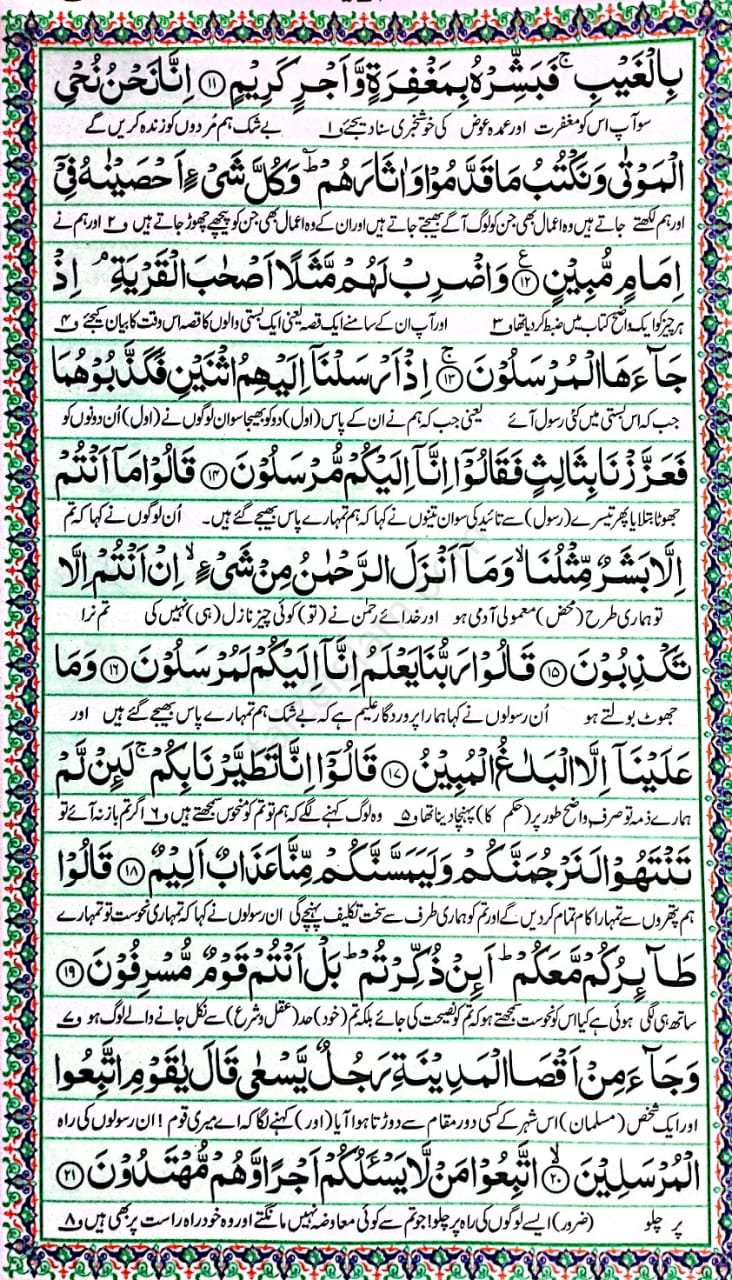 بِالْغَيْبِ ۚ فَبَشِّرْهُ بِمَغْفِرَةٍ وَّاَجْرٍ كَرِيْمٍ ۝۱۱ اِنَّا نَحْنُ نُحْيِ
سو آپ اس کو مغفرت اور عمدہ عوض کی خوشخبری سنا دیجئے ۱ بے شک ہم مُردوں کو زندہ کریں گے
الْمَوْتٰى وَنَكْتُبُ مَا قَدَّمُوْا وَاٰثَارَهُمْ ؕ وَكُلَّ شَىْءٍ اَحْصَيْنٰهُ فِىْٓ
اور ہم لکھتے جاتے ہیں وہ اعمال بھی جن کو لوگ آگے بھیجتے جاتے ہیں اور ان کے وہ اعمال بھی جن کو پیچھے چھوڑ جاتے ہیں ۲ اور ہم نے
اِمَامٍ مُّبِيْنٍ ۝۱۲ ع وَاضْرِبْ لَهُمْ مَّثَلًا اَصْحٰبَ الْقَرْيَةِ ۘ اِذْ
ہر چیز کو ایک واضح کتاب میں ضبط کر دیا تھا ۳ اور آپ ان کے سامنے ایک قصہ یعنی ایک بستی والوں کا قصہ اس وقت کا بیان کیجئے ۴
جَآءَهَا الْمُرْسَلُوْنَ ۝۱۳ ۚ اِذْ اَرْسَلْنَآ اِلَيْهِمُ اثْنَيْنِ فَكَذَّبُوْهُمَا
جب کہ اس بستی میں کئی رسول آئے یعنی جب کہ ہم نے ان کے پاس (اول) دو کو بھیجا سو ان لوگوں نے (اول) اُن دونوں کو
فَعَزَّزْنَا بِثَالِثٍ فَقَالُوْٓا اِنَّآ اِلَيْكُمْ مُّرْسَلُوْنَ ۝۱۴ قَالُوْا مَآ اَنْتُمْ
جھوٹا بتلایا پھر تیسرے (رسول) سے تائید کی سو ان تینوں نے کہا کہ ہم تمہارے پاس بھیجے گئے ہیں۔ اُن لوگوں نے کہا کہ تم
اِلَّا بَشَرٌ مِّثْلُنَا ۙ وَمَآ اَنْزَلَ الرَّحْمٰنُ مِنْ شَىْءٍ ۙ اِنْ اَنْتُمْ اِلَّا
تو ہماری طرح (محض) معمولی آدمی ہو اور خدائے رحمٰن نے (تو) کوئی چیز نازل (ہی) نہیں کی تم نرا
تَكْذِبُوْنَ ۝۱۵ قَالُوْا رَبُّنَا يَعْلَمُ اِنَّآ اِلَيْكُمْ لَمُرْسَلُوْنَ ۝۱۶ وَمَا
جھوٹ بولتے ہو اُن رسولوں نے کہا ہمارا پروردگار علیم ہے کہ بے شک ہم تمہارے پاس بھیجے گئے ہیں اور
عَلَيْنَآ اِلَّا الْبَلٰغُ الْمُبِيْنُ ۝۱۷ قَالُوْٓا اِنَّا تَطَيَّرْنَا بِكُمْ ۚ لَئِنْ لَّمْ
ہمارے ذمہ تو صرف واضح طور پر (حکم کا) پہنچا دینا تھا ۵ وہ لوگ کہنے لگے کہ ہم تو تم کو منحوس سمجھتے ہیں ۶ اگر تم باز نہ آئے تو
تَنْتَهُوْا لَنَرْجُمَنَّكُمْ وَلَيَمَسَّنَّكُمْ مِّنَّا عَذَابٌ اَلِيْمٌ ۝۱۸ قَالُوْا
ہم پتھروں سے تمہارا کام تمام کر دیں گے اور تم کو ہماری طرف سے سخت تکلیف پہنچے گی ان رسولوں نے کہا کہ تمہاری نحوست تو تمہارے
طَآئِرُكُمْ مَّعَكُمْ ؕ اَئِنْ ذُكِّرْتُمْ ؕ بَلْ اَنْتُمْ قَوْمٌ مُّسْرِفُوْنَ ۝۱۹
ساتھ ہی لگی ہوئی ہے کیا اس کو نحوست سمجھتے ہو کہ تم کو نصیحت کی جائے بلکہ تم (خود) حد (عقل و شرع) سے نکل جانے والے لوگ ہو ۷
وَجَآءَ مِنْ اَقْصَا الْمَدِيْنَةِ رَجُلٌ يَّسْعٰى قَالَ يٰقَوْمِ اتَّبِعُوا
اور ایک شخص (مسلمان) اس شہر کے کسی دور مقام سے دوڑتا ہوا آیا (اور) کہنے لگا کہ اے میری قوم! ان رسولوں کی راہ
الْمُرْسَلِيْنَ ۝۲۰ ۙ اتَّبِعُوْا مَنْ لَّا يَسْئَلُكُمْ اَجْرًا وَّهُمْ مُّهْتَدُوْنَ ۝۲۱
پر چلو (ضرور) ایسے لوگوں کی راہ پر چلو! جو تم سے کوئی معاوضہ نہیں مانگتے اور وہ خود راہ راست پر بھی ہیں ۸